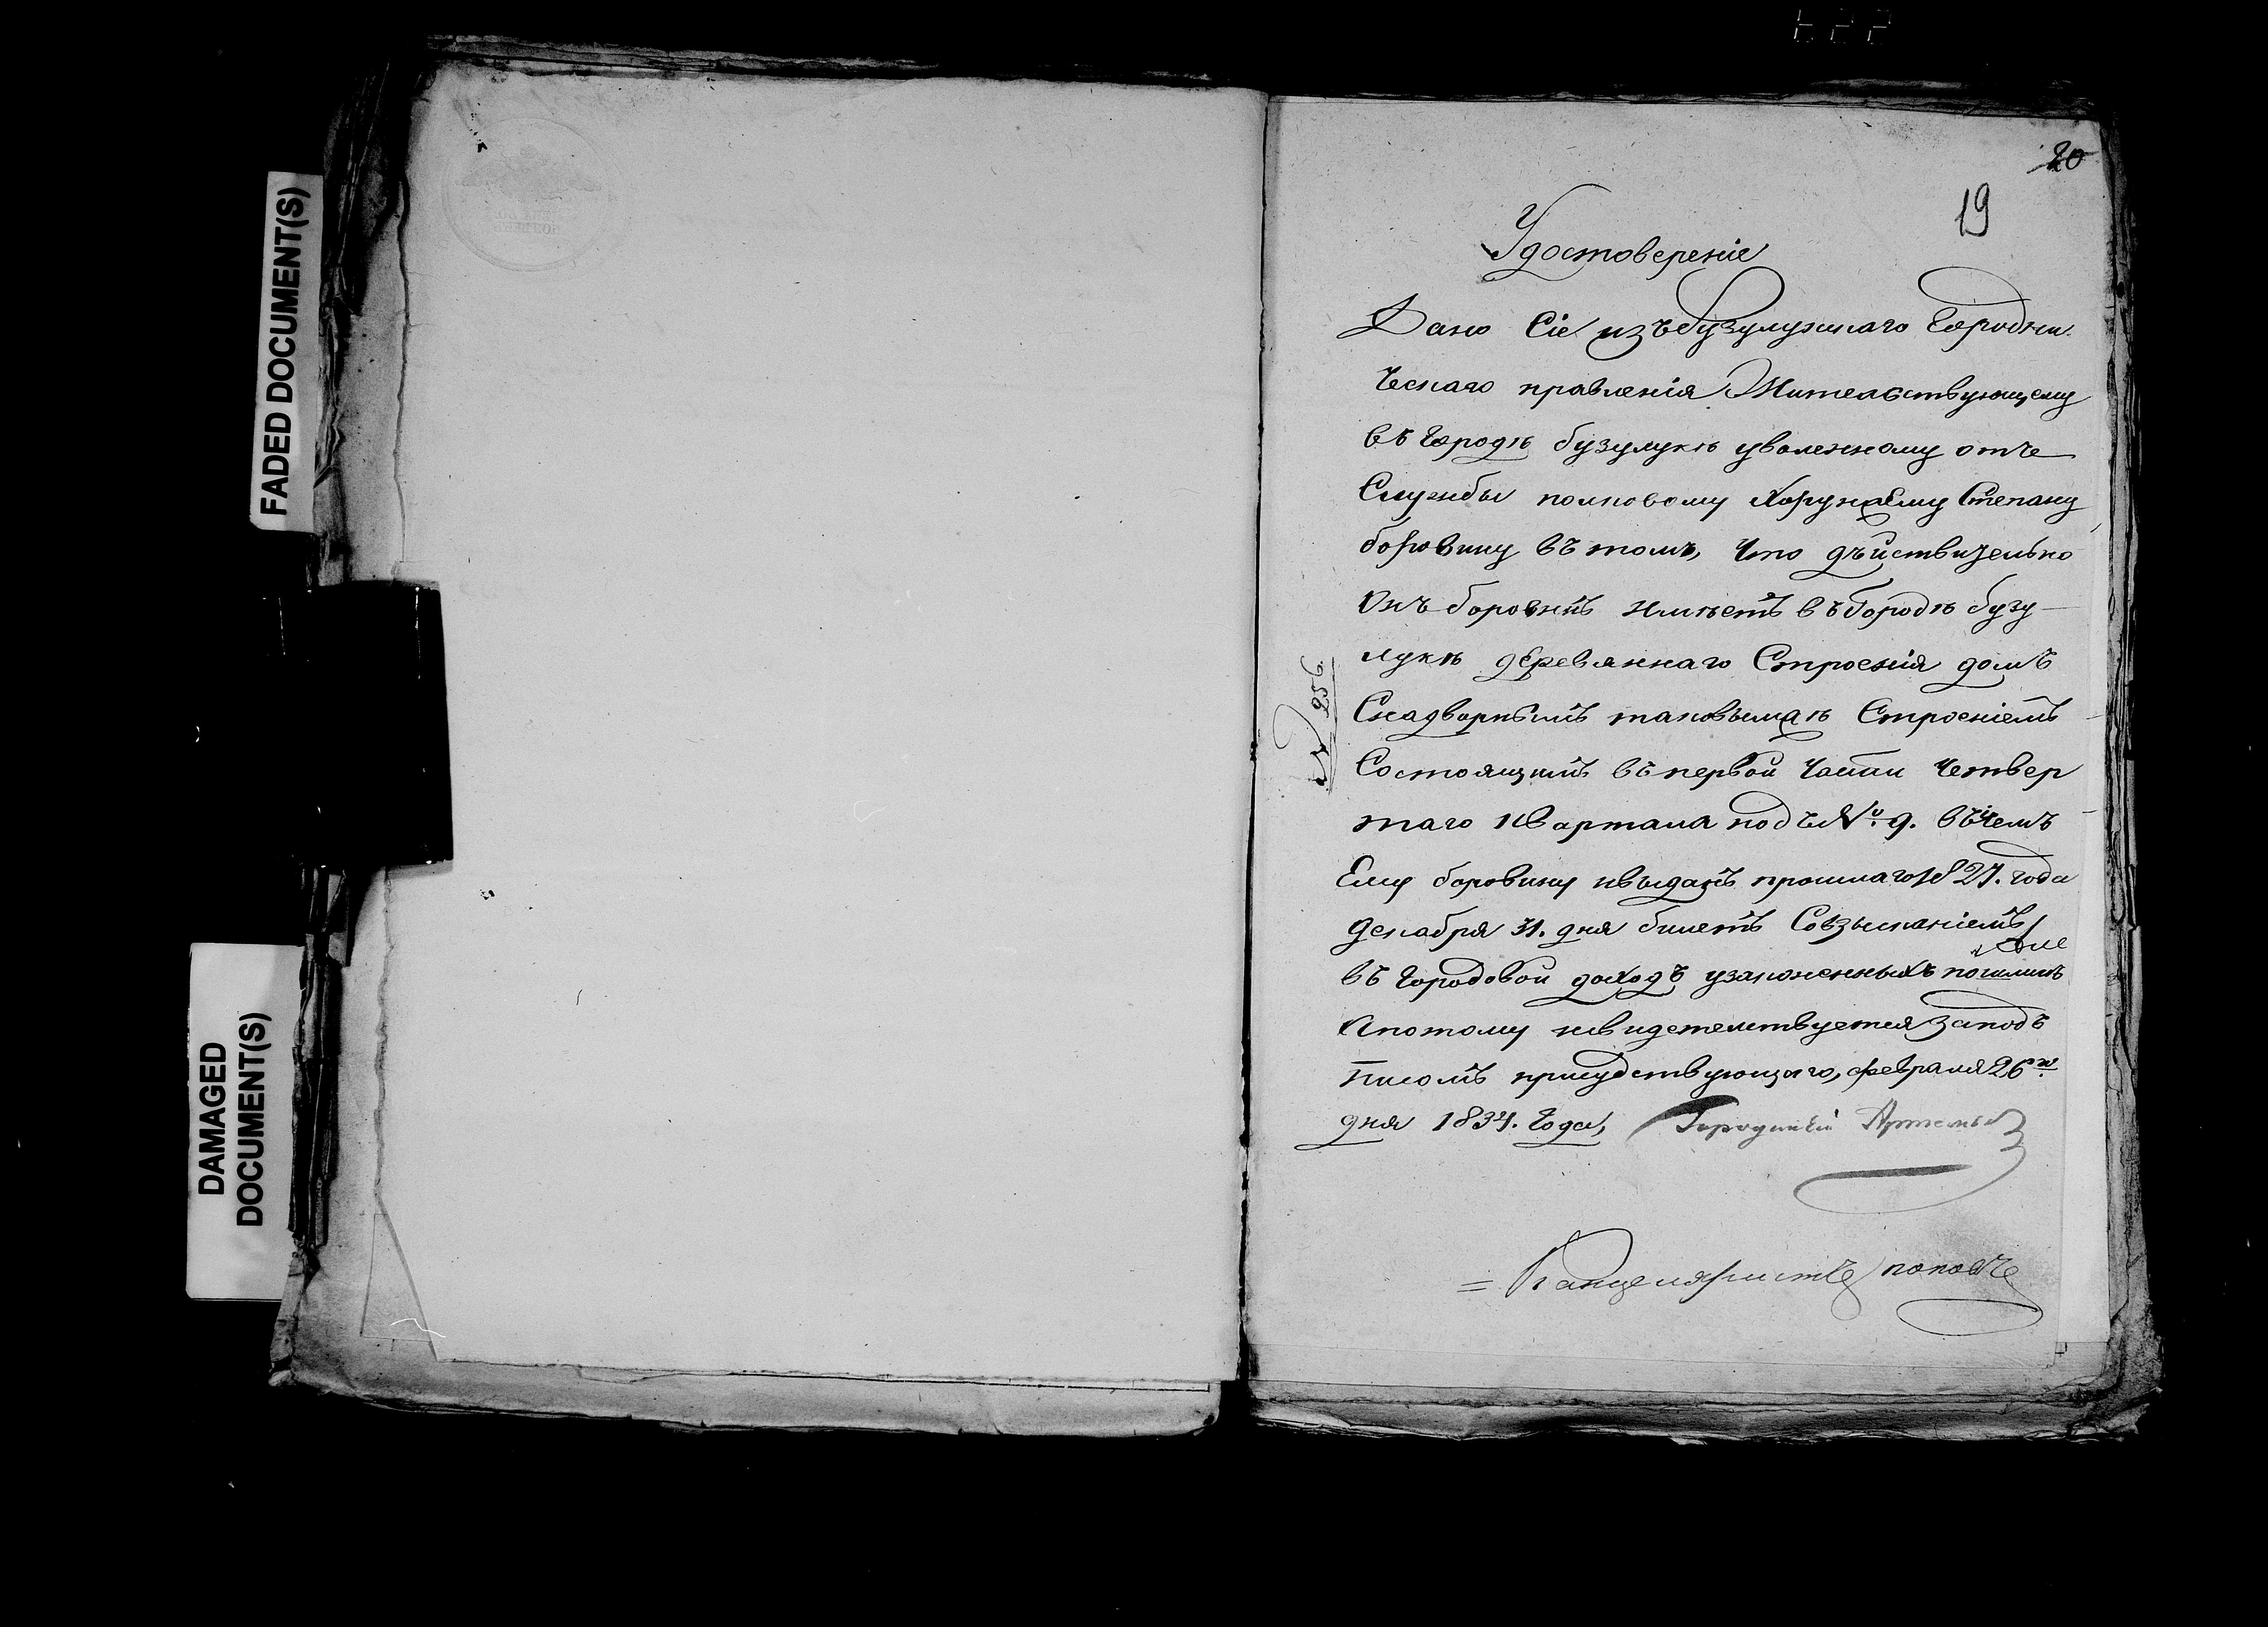 FADED DOCUMENT(S)
DAMAGED
DOCUMENT(S)
20
19
Удостоверение
Дано Сіе изъ бузулуцкаго Городни
ческаго правленія Жительствующему
въ городѣ бузулукѣ уволенному отъ
Службы полковому Хорунжему Степану
боровину въ томъ, что дѣйствительно
Онъ боровинъ имѣетъ въ городѣ бузу
лукѣ деревяннаго Строенія домъ
Снадворнымъ таковымже Строеніемъ
Состоящимъ въ первой части четвер
таго квартала подъ № 9. въ чемъ
Ему боровину и выданъ прошлаго 1827. года
декабря 31. дня билетъ Совзысканіемъ
въ городовой доходъ узаконенныхъ пошлинъ
А потому и свидетелствуется За подъ
писомъ присудствующаго, февраля 26го
дня 1834. года, Городничій
Канцеляристъ поповъ
№ 256